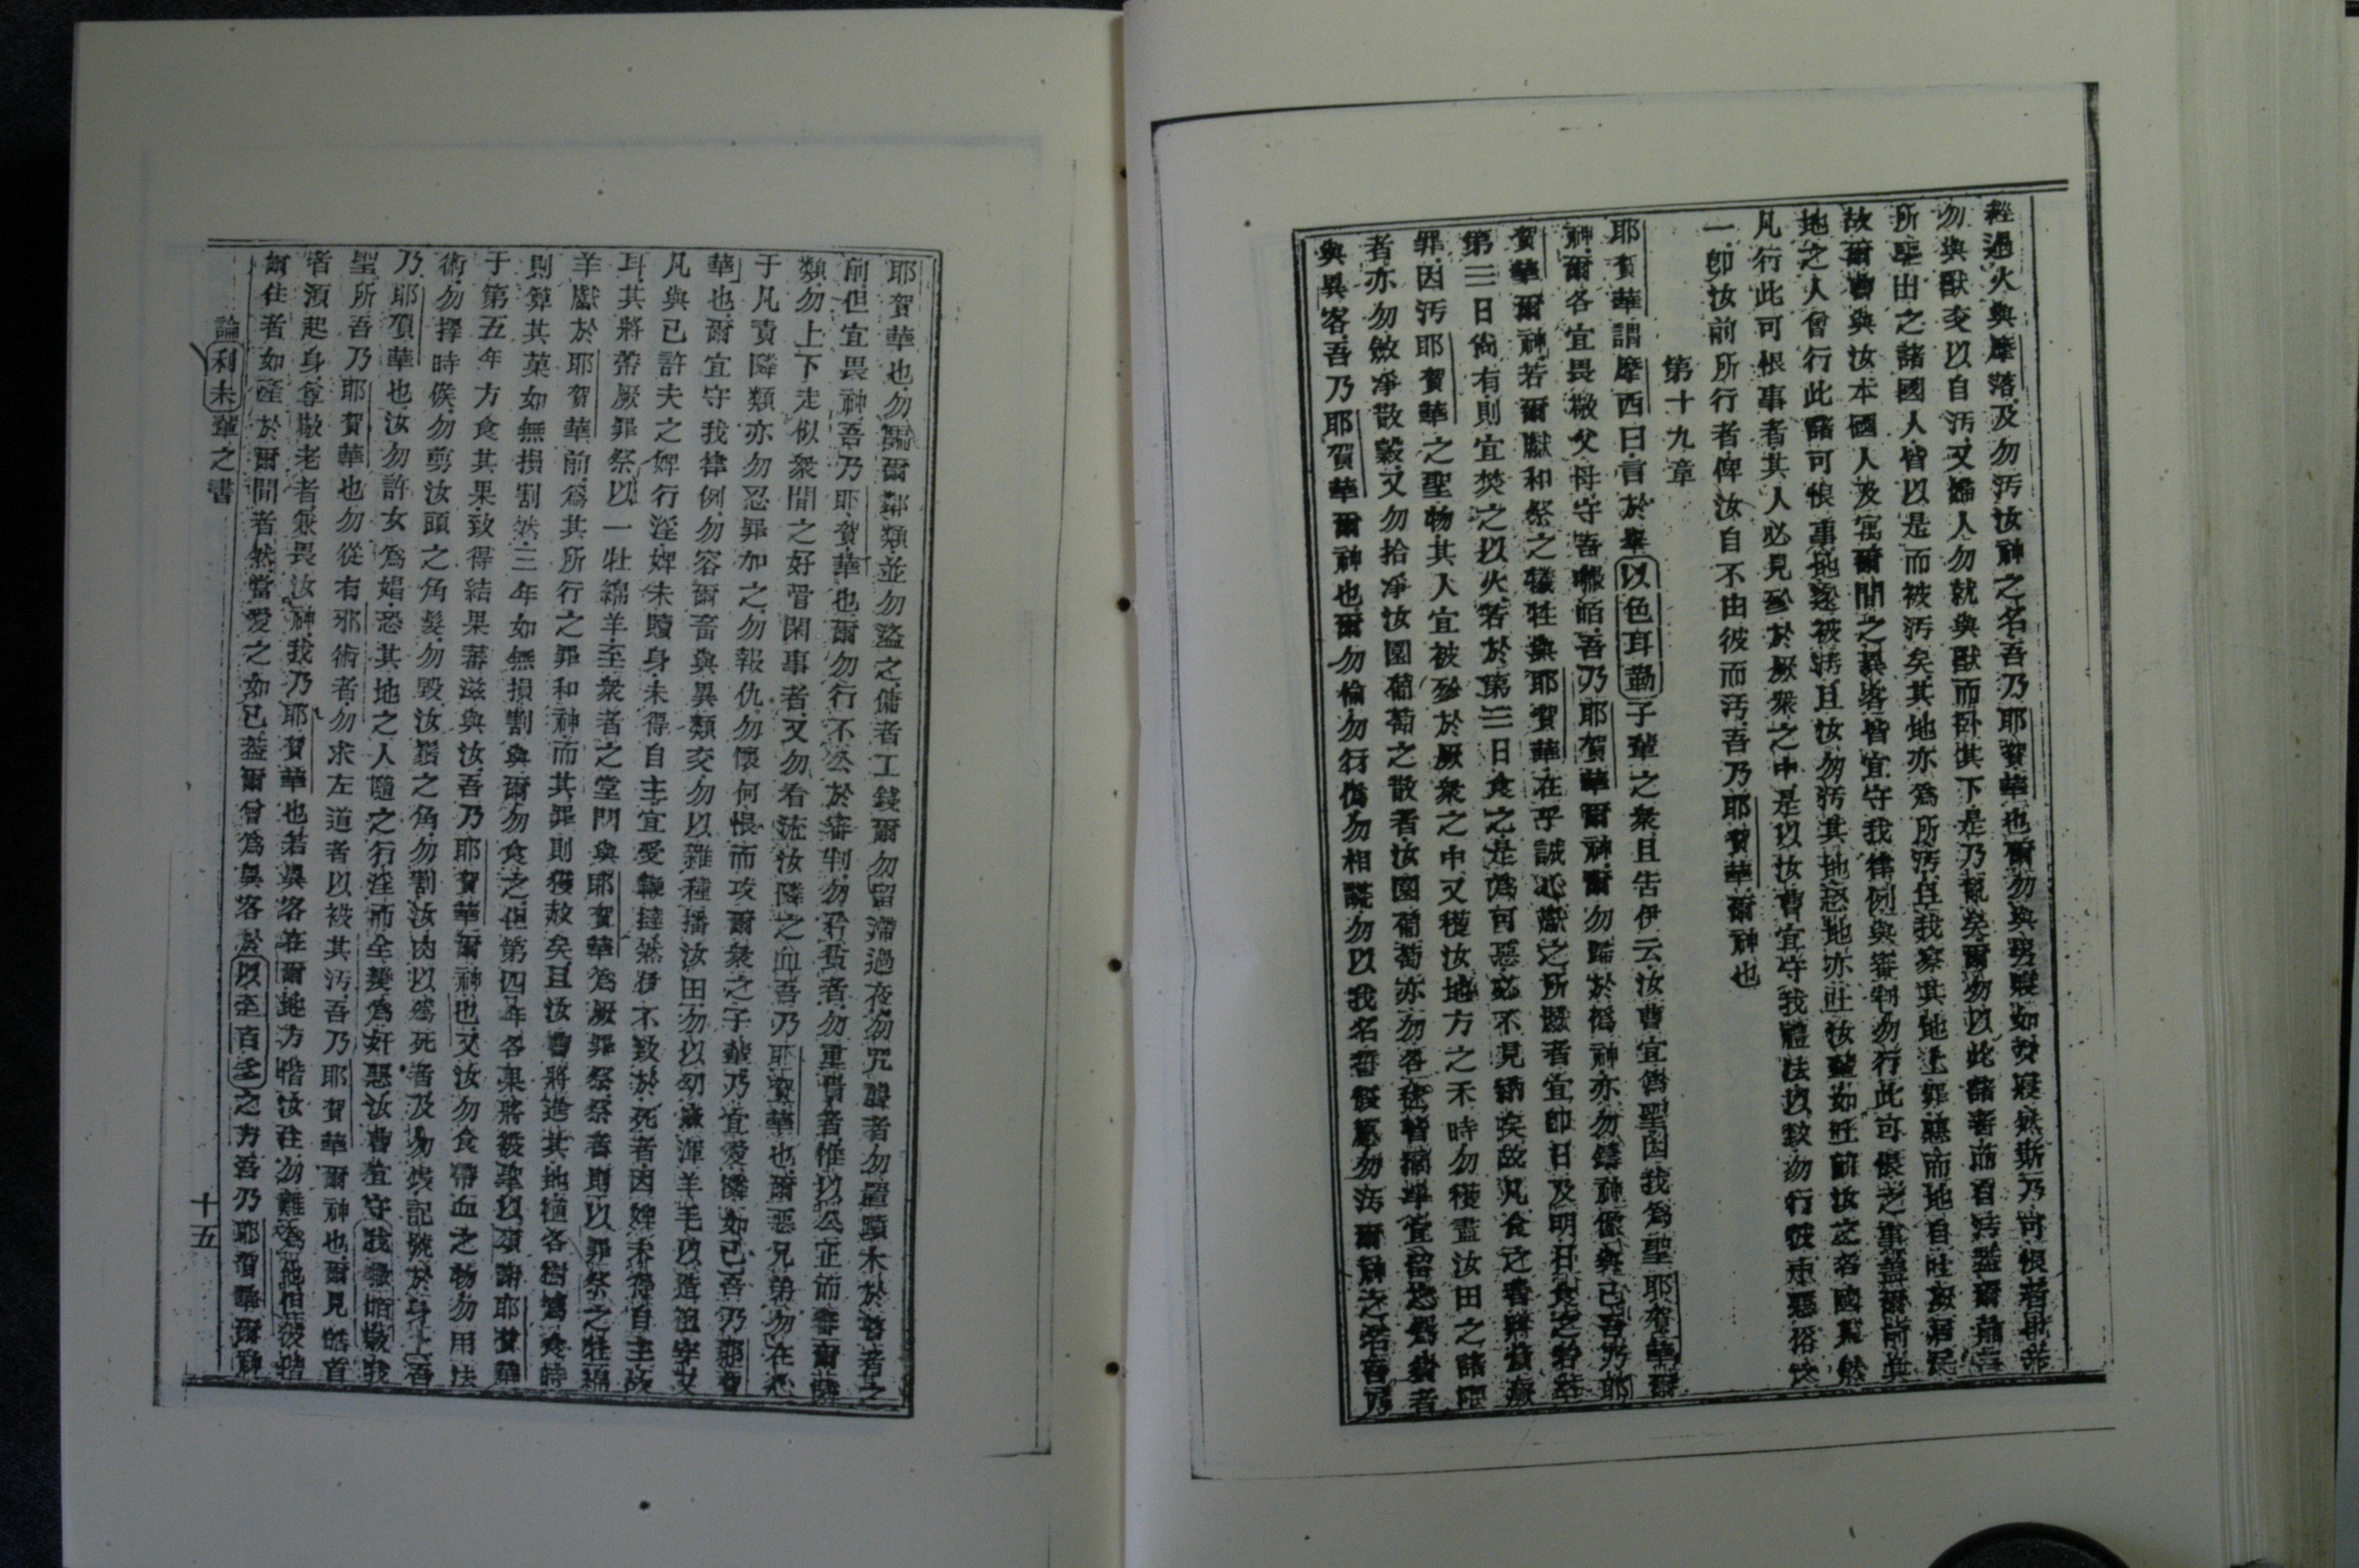 經過火與摩落及勿汚汝神之名吾乃耶賀華也爾勿與男寢如於寢然斯乃可恨者
勿與獸交以自汚又婦人勿就與獸而卧其下是乃亂矣爾勿以此諸者而自汚蓋爾
所驅出之諸國人皆以是而被汚矣其地亦爲所汚且我察其地上罪惡而地自吐厥居民
故爾曹與汝本國人及寓爾間之異客皆宜守我律例與審判勿行此可恨之事蓋爾前
地之人曾行此諸可恨事地遂被汚且汝勿汚其地恐地亦吐汝輩如吐前汝之各國人然
凡行此可恨事者其人必見殄於厥衆之中是以汝曹宜守我體法以致勿行彼惡俗
一卽汝前所行者俾汝自不由彼而汚吾乃耶賀華爾神也
第十九章
耶賀華謂摩西曰言於與以色耳勒子輩之衆且告伊云汝曹宜爲聖因我爲聖耶賀華爾
神爾各宜畏敬父母守吾㘔咟吾乃耶賀華爾神爾勿歸於僞神亦勿鑄神像與己吾乃耶
賀華爾神若爾獻和祭之犧牲與耶賀華在乎誠心獻之所獻者宜卽日及明日食之若至
第三日尙有則宜焚之以火若於第三日食之是爲可惡必不見納矣故凡食之者將負厥
罪因汚耶賀華之聖物其人宜被殄於厥衆之中又穫汝地方之禾時勿穫盡汝田之諸隈
者亦勿斂凈散穀又勿拾凈汝園葡萄之散者汝園葡萄亦勿各
與異客吾乃耶賀華爾神也爾勿偷勿行僞勿相謊勿以我名誓假愿勿汚爾神之名吾乃
耶賀華也勿騙爾鄰類並勿盜之傭者工錢爾勿留滯過夜勿咒聾者勿置躓木於瞽者之
前但宜畏神吾乃耶賀華也爾勿行不公於審判勿矜貧者勿重貴者惟以公正而審爾鄰
類勿上下走似衆間之好管閑事者又勿看流汝隣之血吾乃耶賀華也爾惡兄弟勿在心
于凡責隣類亦勿忍罪加之勿報仇勿懷何恨而攻爾衆之子輩乃宜愛隣如己吾乃耶賀
華也爾宜守我律例勿容爾畜與異類交勿以雜種播汝田勿以
凡與已許夫之婢行淫婢未贖身未得自主宜受鞭撻然伊不致於死者因婢未得自主故
耳其將帶厥罪祭以一牡綿羊至衆者之堂門與耶賀華爲厥罪祭祭者則以罪祭之牡綿
羊獻於耶賀華前爲其所行之罪和神而其罪則獲赦矣且汝曹將進其地植各樹爲食時
則算其菓如無損割然三年如無損割與爾勿食之但第四年各果將被聖以頌謝耶賀華
于第五年方食其果致得結果蕃滋與汝吾乃耶賀華爾神也又汝勿食帶血之物勿用法
術勿擇時候勿剪汝頭之角髮勿毀汝鬍之角勿割汝肉以爲死者及勿裝記號於身上吾
乃耶賀華也汝勿許女爲娼恐其地之人隨之行淫而全變爲奸惡汝曹宜守我㘔咟敬我
聖所吾乃耶賀華也勿從有邪術者勿求左道者以被其汚吾乃耶賀華爾神也爾見皓首
者須起身尊敬老者兼畏汝神我乃耶賀華也若異客在爾地方偕汝住勿難爲他但彼偕
爾住者如產於爾間者然當愛之如己蓋爾曾爲異客於以至百多之方吾乃耶賀華爾神
論利未輩之書
十五